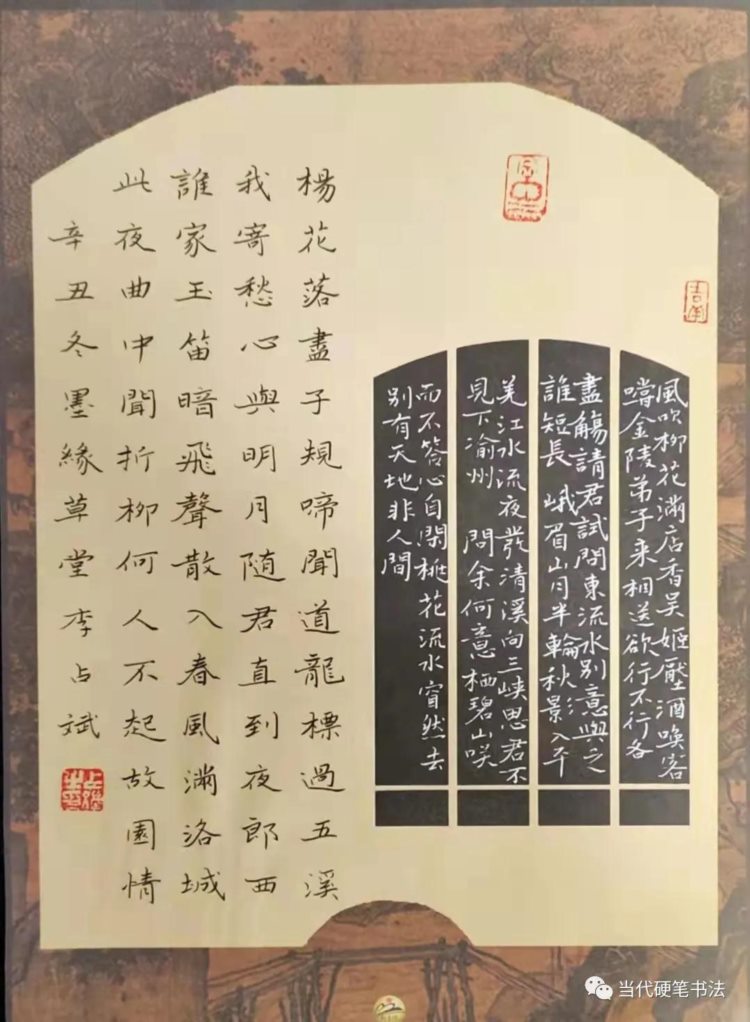 風吹柳花滿店香吳姬壓酒喚客
嚐金陵弟子來相送欲行不行各
盡觴請君試問東流水別意與之
誰短長 峨眉山月半輪秋影入平
羌江水流夜發清溪向三峽思君不
見下渝州 問余何意栖碧山咲
而不答心自閑桃花流水窅然去
別有天地非人間
楊花落盡子規啼聞道龍標過五溪
我寄愁心與明月隨君直到夜郎西
誰家玉笛暗飛聲散入春風滿洛城
此夜曲中聞折柳何人不起故園情
辛丑冬墨緣草堂李占斌
当代硬笔书法